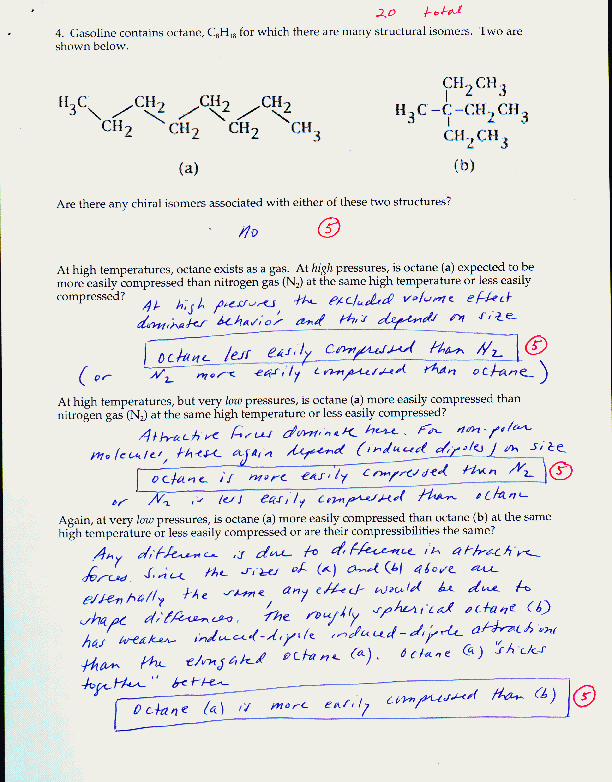 20 total
4. Gasoline contains octane, C8H18 for which there are many structural isomers. Two are
shown below.
CH2CH3
H3C CH2 CH2 CH2
H3C-C-CH2CH3
CH2 CH2 CH2 CH3
CH2CH3
(a) (b)
Are there any chiral isomers associated with either of these two structures?
no 5
At high temperatures, octane exists as a gas. At high pressures, is octane (a) expected to be
more easily compressed than nitrogen gas (N2) at the same high temperature or less easily
compressed?
At high pressures, the excluded volume effect
dominates behavior, and this depends on size
octane less easily compressed than N2 5
(or N2 more easily compressed than octane)
At high temperatures, but very low pressures, is octane (a) more easily compressed than
nitrogen gas (N2) at the same high temperature or less easily compressed?
Attractive forces dominate here. For non-polar
molecules, these again depend (induced dipoles) on size
octane is more easily compressed than N2 5
or N2 is less easily compressed than octane
Again, at very low pressures, is octane (a) more easily compressed than octane (b) at the same
high temperature or less easily compressed or are their compressibilities the same?
Any difference is due to difference in attractive
forces. Since the sizes of (a) and (b) above are
essentially the same, any effect would be due to
shape differences. The roughly spherical octane (b)
has weaker induced-dipole induced-dipole attractions
than the elongated octane (a). Octane (a) "sticks
together" better
Octane (a) is more easily compressed than (b) 5